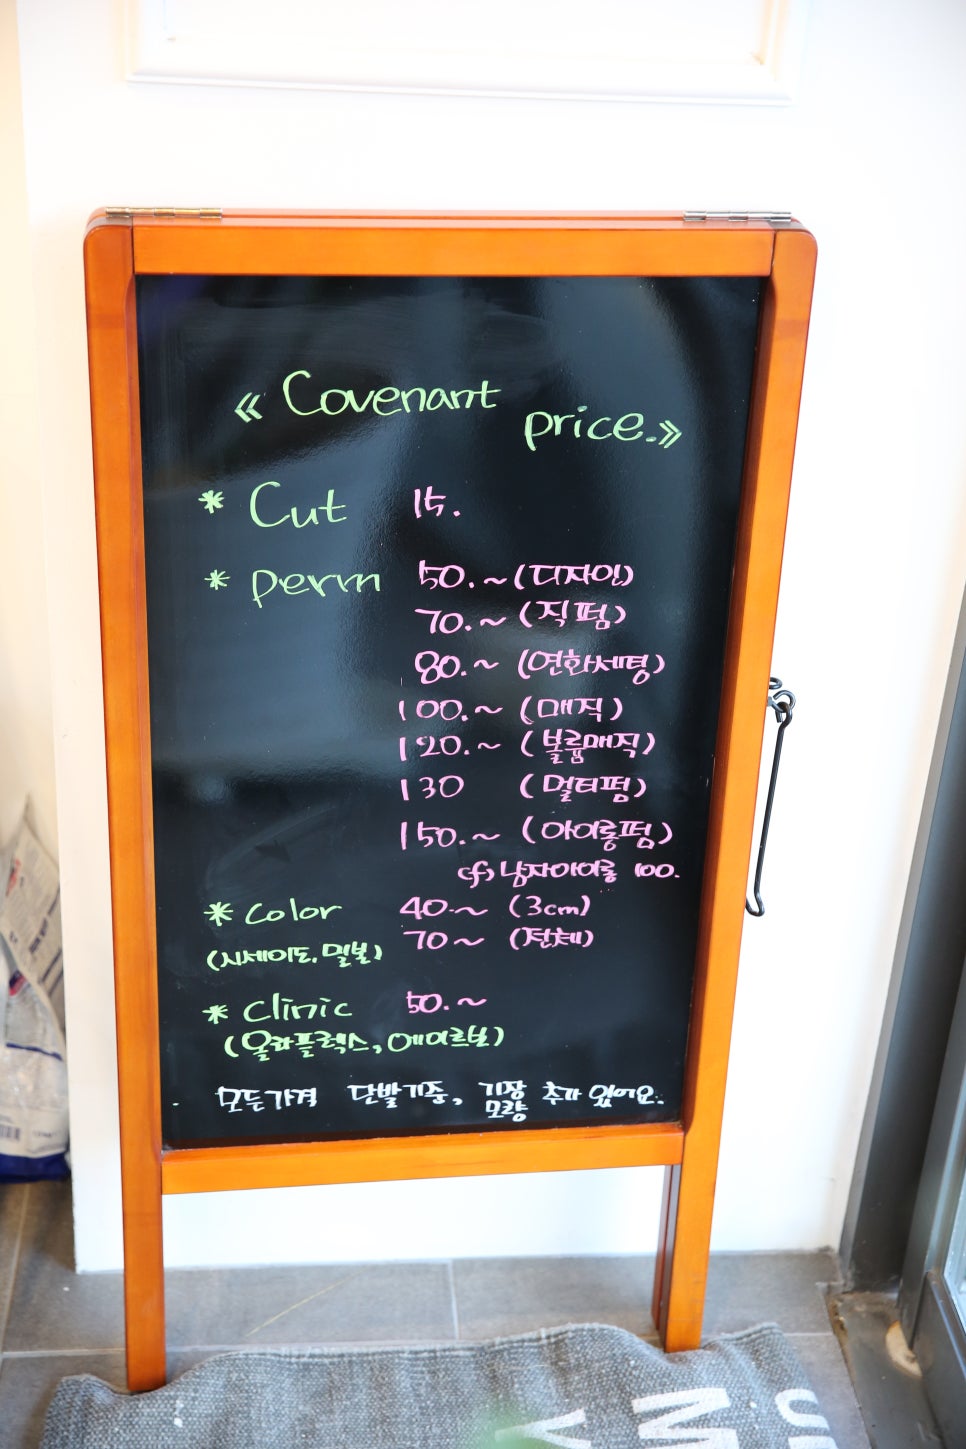 « Covenant price. »
* Cut 15.
* Perm 50.~ (디자인)
70.~ (직펌)
80.~ (연화세팅)
100.~ (매직)
120.~ (볼륨매직)
130 (멀티펌)
150.~ (아이롱펌)
cf) 남자아이롱 100.
* Color 40.~ (3cm)
(시세이도, 밀본) 70~ (전체)
* Clinic 50.~
(올라플렉스, 에이르보)
모든가격 단발기준, 기장 모량 추가 있어요.